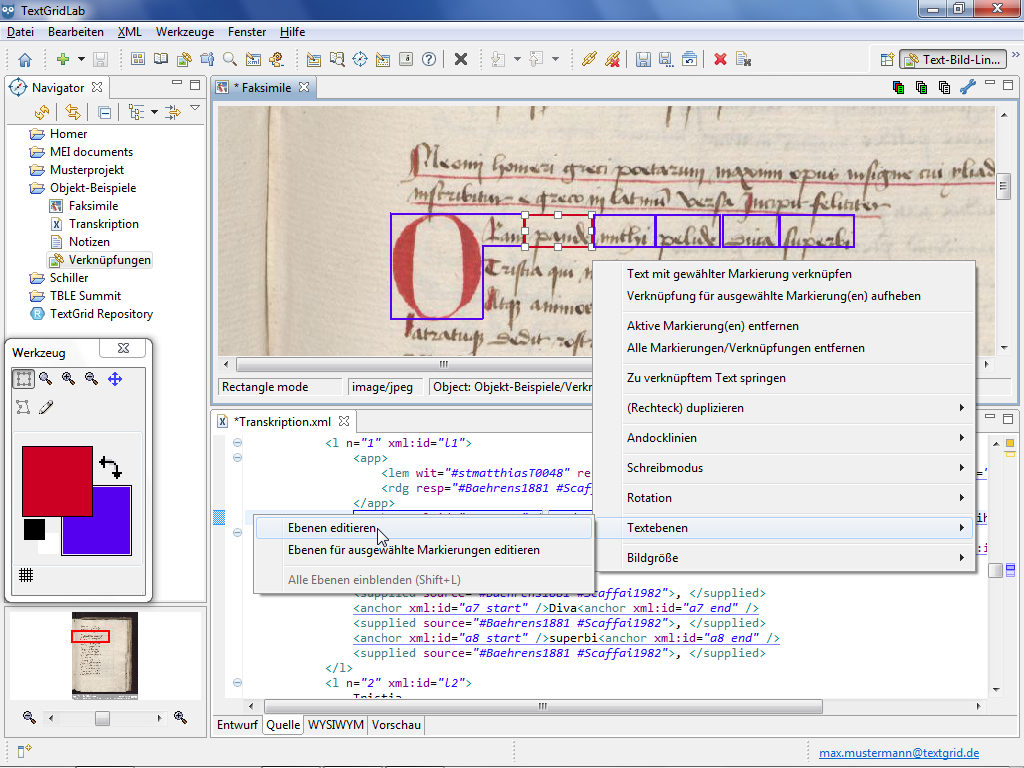 TextGridLab
Datei Bearbeiten XML Werkzeuge Fenster Hilfe
Text-Bild-Lin...
Navigator
Homer
MEI documents
Musterprojekt
Objekt-Beispiele
Faksimile
Transkription
Notizen
Verknüpfungen
Schiller
TBLE Summit
TextGrid Repository
Werkzeug
* Faksimile
homeri greci poetarum maximi opus insigne cui yliad
e greco in latinu versa Incipit feliciter
pande michi pelide Diva superbi
Tristia qui
Atq animos
Rectangle mode
image/jpeg
Object: Objekt-Beispiele/Verkn
Text mit gewählter Markierung verknüpfen
Verknüpfung für ausgewählte Markierung(en) aufheben
Aktive Markierung(en) entfernen
Alle Markierungen/Verknüpfungen entfernen
Zu verknüpftem Text springen
(Rechteck) duplizieren
Andocklinien
Schreibmodus
Rotation
Textebenen
Bildgröße
Ebenen editieren
Ebenen für ausgewählte Markierungen editieren
Alle Ebenen einblenden (Shift+L)
*Transkription.xml
<l n="1" xml:id="l1">
<app>
<lem wit="#stmatthiasT0048" re
<rdg resp="#Baehrens1881 #Scaf
</app>
<supplied source="#Baehrens1881 #Scaffai1982">, </supplied>
<anchor xml:id="a7_start" />Diva<anchor xml:id="a7_end" />
<supplied source="#Baehrens1881 #Scaffai1982">, </supplied>
<anchor xml:id="a8_start" />superbi<anchor xml:id="a8_end" />
<supplied source="#Baehrens1881 #Scaffai1982">, </supplied>
</l>
<l n="2" xml:id="l2">
Tristia
Entwurf Quelle WYSIWYM Vorschau
max.mustermann@textgrid.de